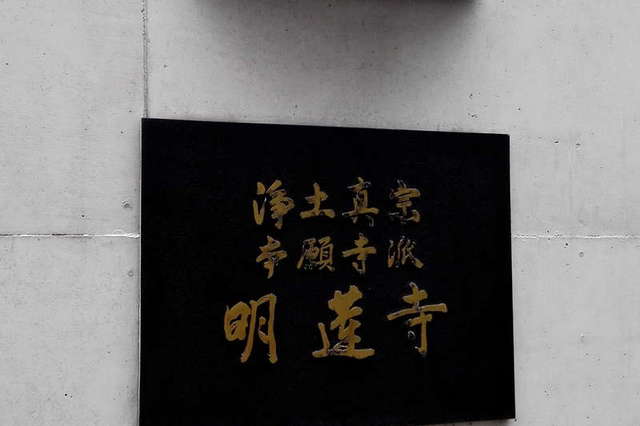 浄土真宗
本願寺派
明蓮寺